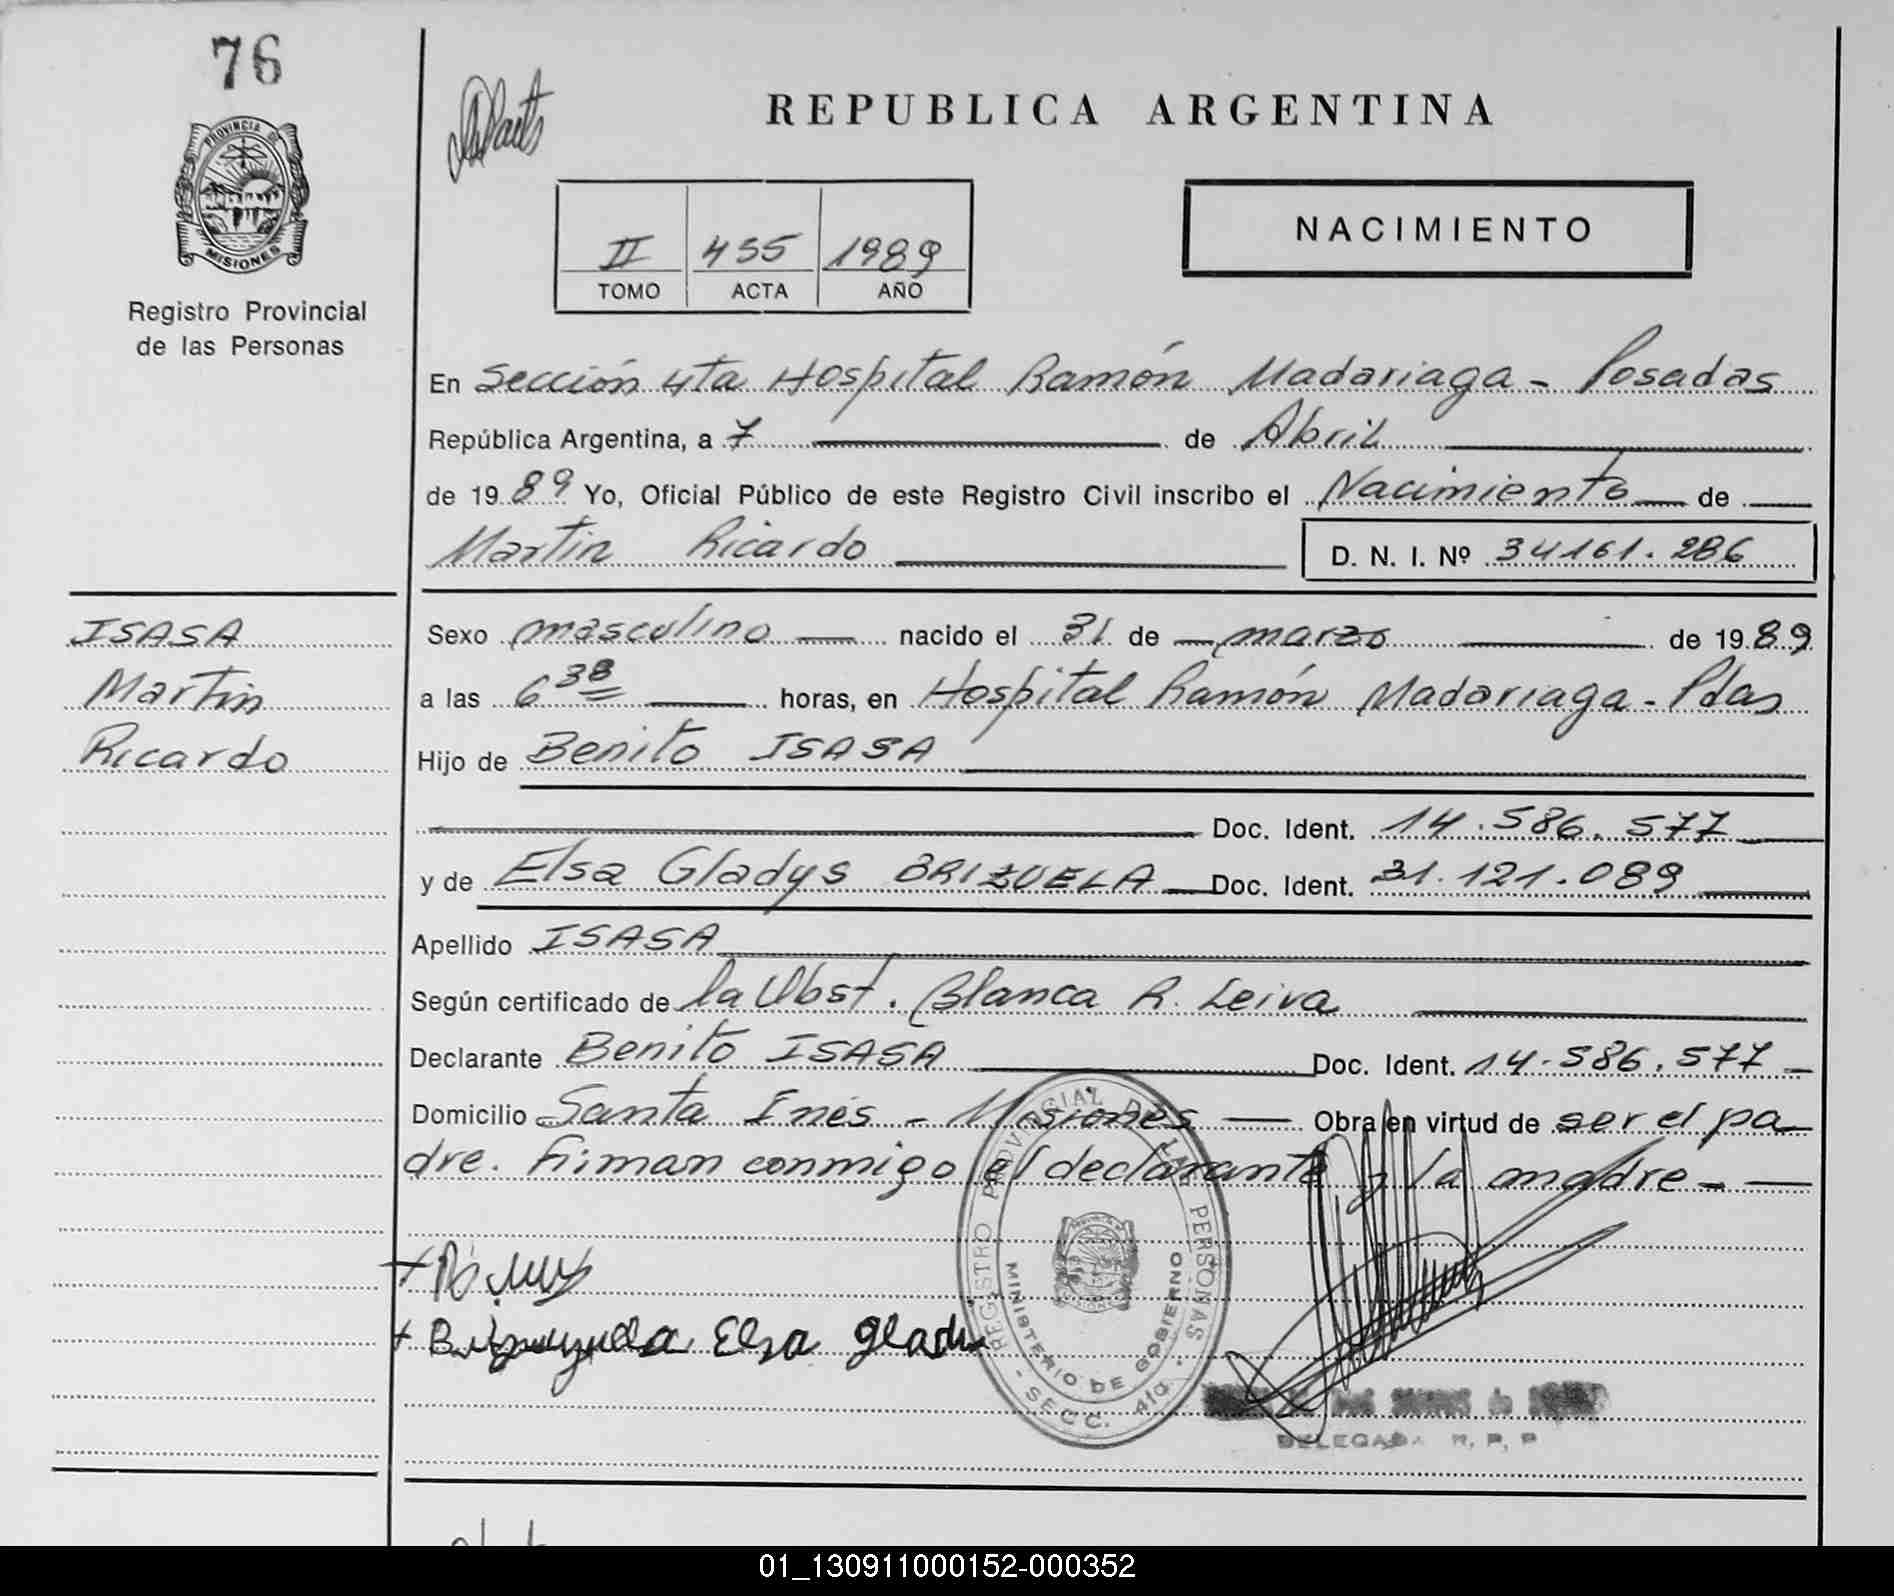 76
REPUBLICA ARGENTINA
PROVINCIA DE
MISIONES
Registro Provincial
de las Personas
II 455 1989
TOMO ACTA AÑO
NACIMIENTO
En Sección 4ta Hospital Ramón Madariaga - Posadas
República Argentina, a 7 de Abril
de 1989 Yo, Oficial Público de este Registro Civil inscribo el Nacimiento de
Martin Ricardo D. N. I. Nº 34161.286
ISASA
Martin
Ricardo
Sexo masculino nacido el 31 de marzo de 1989
a las 6 38 horas, en Hospital Ramón Madariaga - Pdas
Hijo de Benito ISASA
Doc. Ident. 14.586.577
y de Elsa Gladys BRIZUELA Doc. Ident. 31.121.089
Apellido ISASA
Según certificado de la Obst. Blanca R. Leiva
Declarante Benito ISASA Doc. Ident. 14.586.577
Domicilio Santa Inés - Misiones Obra en virtud de ser el pa-
dre. Firman conmigo el declarante y la madre -
Elsa Gladi
REGISTRO PROVINCIAL DE LAS PERSONAS
MINISTERIO DE GOBIERNO
- SECC. 4ta.
DELEGADA R. P. P
01_130911000152-000352